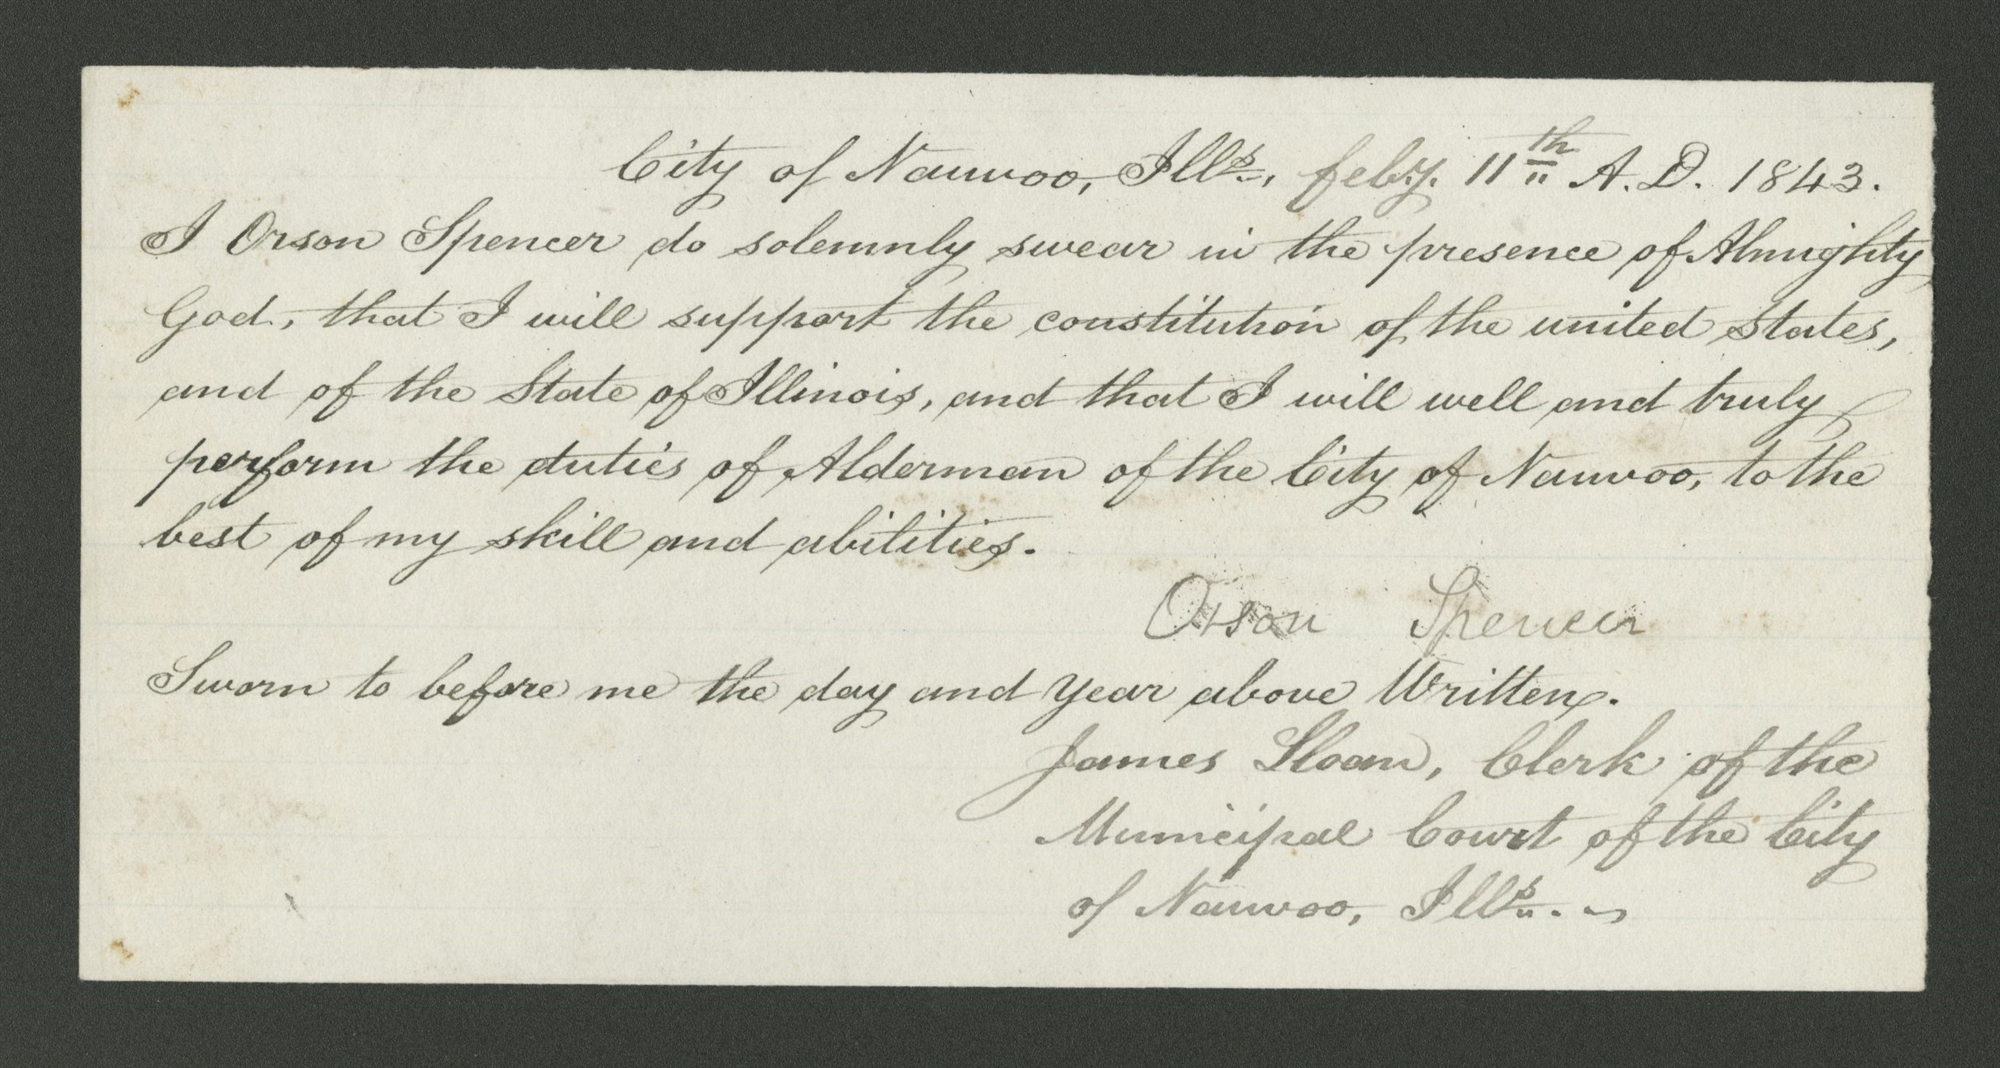 City of Nauvoo, Ills., feby. 11th A. D. 1843.
I Orson Spencer do solemnly swear in the presence of Almighty
God, that I will support the constitution of the united States,
and of the State of Illinois, and that I will well and truly
perform the duties of Alderman of the City of Nauvoo, to the
best of my skill and abilities.
Orson Spencer
Sworn to before me the day and year above Written.
James Sloan, Clerk of the
Municipal Court of the City
of Nauvoo, Ills.